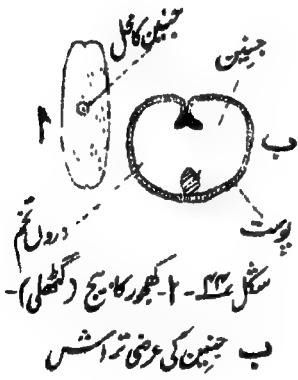 جنین کا محل
جنین
ا
ب
درون تخم
پوست
شکل ۴۴۔ ا۔ کھجور کا بیج (گٹھلی)۔
ب جنین کی عرضی تراش